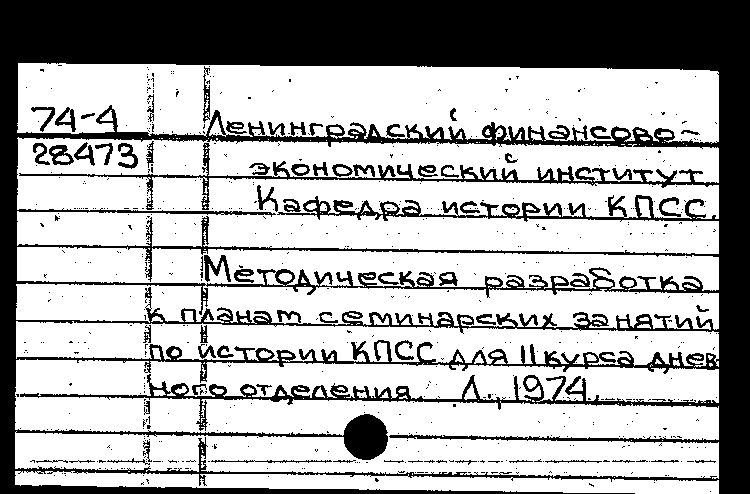 74-4 Ленинградский финансово-
28473 экономический институт
Кафедра истории КПСС.
Методическая разработка
к планам семинарских занятий
по истории КПСС для II курса днев
ного отделения. Л., 1974.